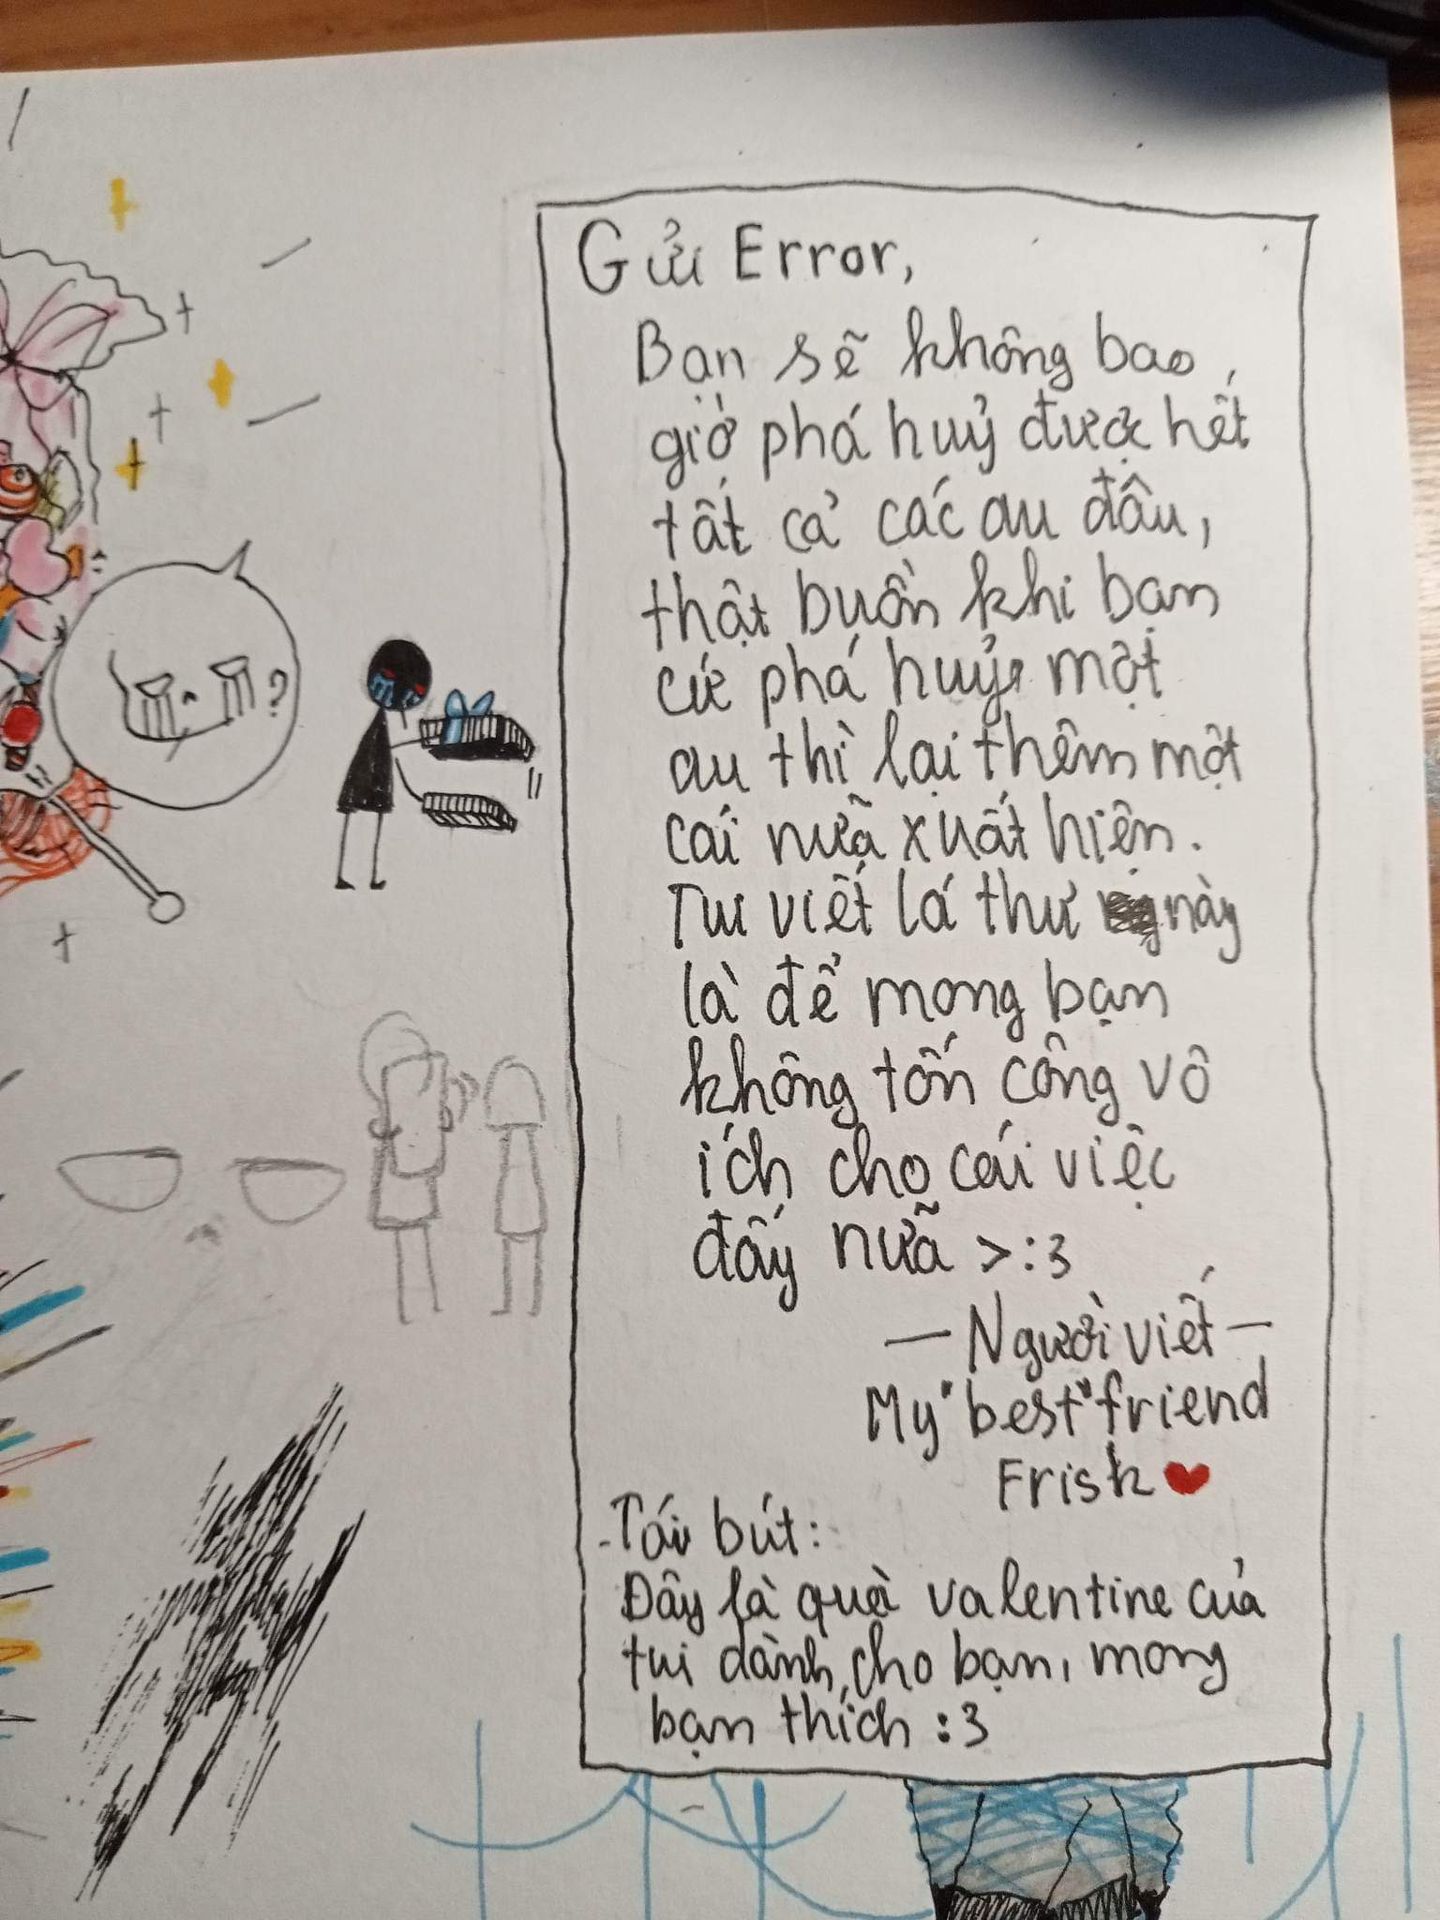 Gửi Error,
Bạn sẽ không bao
giờ phá huỷ được hết
tất cả các au đâu,
thật buồn khi bạn
cứ phá huỷ một
au thì lại thêm một
cái nữa xuất hiện.
Tui viết lá thư này
là để mong bạn
không tốn công vô
ích cho cái việc
đấy nữa >:3
— Người viết —
My "best" friend
Frisk ❤
- Tái bút:
Đây là quà valentine của
tui dành cho bạn, mong
bạn thích :3
?